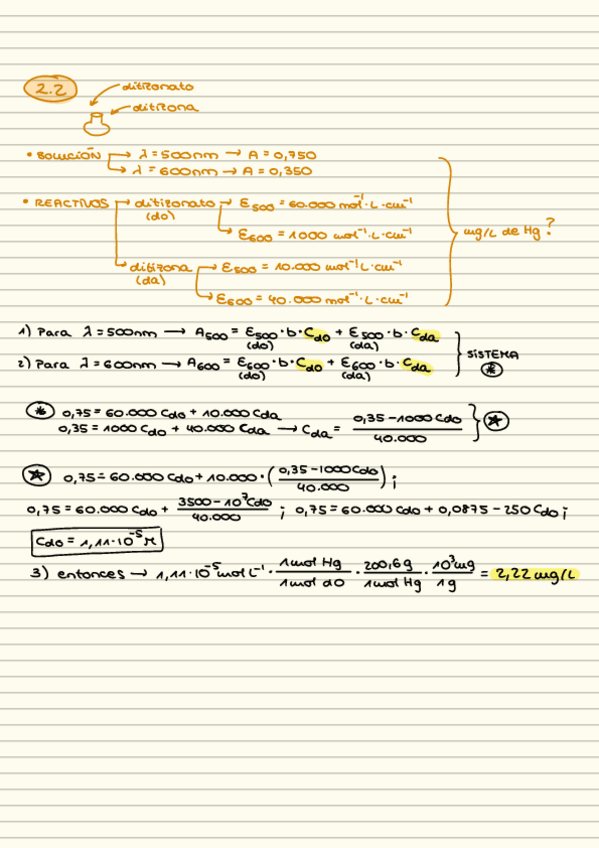 2.2
ditizonato
ditizona
• SOLUCIÓN → λ = 500nm → A = 0,750
→ λ = 600nm → A = 0,350
• REACTIVOS → ditizonato (do) → ε500 = 60.000 mol⁻¹·L·cm⁻¹
→ ε600 = 1000 mol⁻¹·L·cm⁻¹
mg/L de Hg?
→ ditizona (da) → ε500 = 10.000 mol⁻¹·L·cm⁻¹
→ ε600 = 40.000 mol⁻¹·L·cm⁻¹
1) Para λ = 500nm → A500 = ε500 (do) · b · Cdo + ε500 (da) · b · Cda
2) Para λ = 600nm → A600 = ε600 (do) · b · Cdo + ε600 (da) · b · Cda
SISTEMA *
* 0,75 = 60.000 Cdo + 10.000 Cda
0,35 = 1000 Cdo + 40.000 Cda → Cda = (0,35 - 1000 Cdo) / 40.000 ☆
☆ 0,75 = 60.000 Cdo + 10.000 · ( (0,35 - 1000 Cdo) / 40.000 ) ;
0,75 = 60.000 Cdo + (3500 - 10⁷ Cdo) / 40.000 ; 0,75 = 60.000 Cdo + 0,0875 - 250 Cdo ;
Cdo = 1,11·10⁻⁵ M
3) entonces → 1,11·10⁻⁵ mol L⁻¹ · 1 mol Hg / 1 mol do · 200,6 g / 1 mol Hg · 10³ mg / 1 g = 2,22 mg/L